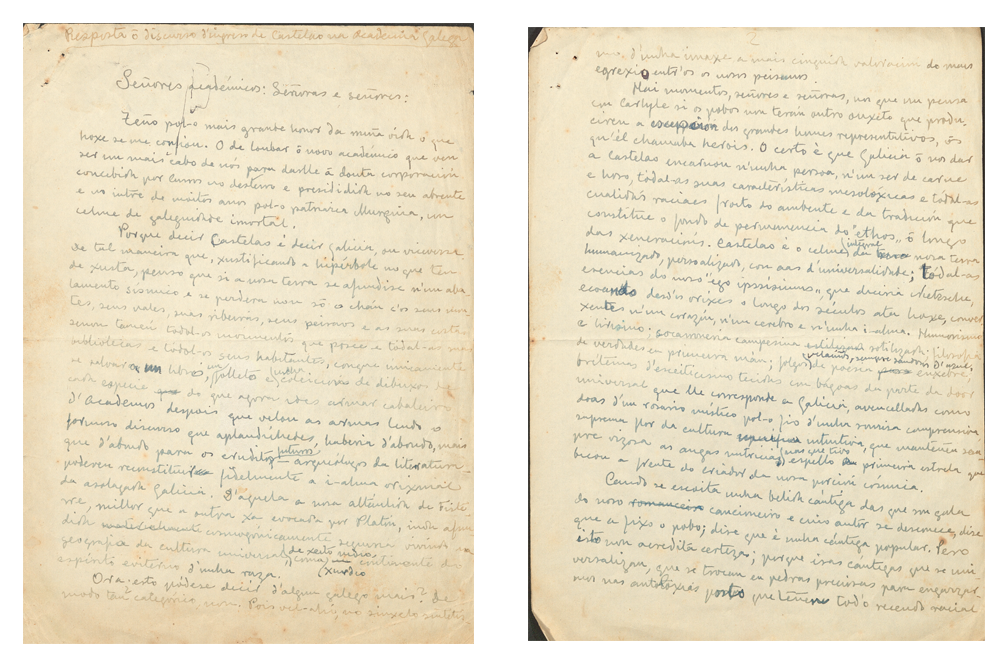 Resposta ô discurso d'ingreso de Castelao na Academia Galega
Señores académicos: Señoras e señores:
Teño pol-o mais grande honor da miña vida o que
hoxe se me confiou. O de loubar ô novo académico que ven
ser un mais cabo de nós para darlle â douta corporación
concibida por Curros no desterro e presidida no seu abrente
e no intre de moitos anos pol-o patriarca Murguía, un
celme de galeguidade inmortal.
Porque decir Castelao é decir Galicia, ou viceversa.
De tal maneira que, xustificando a hipérbole no que ten
de xusta, penso que si a nosa terra se afundise n'un aba-
lamento sísmico e se perderan non só o chán c'os seus mon-
tes, seus vales, suas ribeiras, seus peiraos e as suas costas
senon tamén todal-os monumentos que posee e todal-as suas
bibliotecas e todol-os seus habitantes, conque unicamente
se salvara un libro, un folleto ou coleición de dibuxos de
cada especie do que agora ides armar cabaleiro
d'Academos despois que velou as armas lendo o
formoso discurso que aplaudichedes, habería d'abondo, mais
que d'abondo para os eruditos futuros arqueólogos da literatura
poderen reconstituir fidelmente a i-alma orixinaria
da asolagada Galicia. D'aquela a nosa Atlántida de Fisterre,
millor que a outra xa evocada por Platón, inda afundida
cosmogónicamente seguiría vivindo na
geografía da cultura universal, de xeito indio, coma un continente do
espírito eviterno d'unha raza. (xurdio
Ora: esto pódese decir d'algun galego mais? De
modo tan categórico, non. Pois vel-ahí, no sinxelo sintetis-
2
mo d'unha imaxe a mais cinguida valoración do mais
egrexio entr'os os nosos peisanos.
Hai momentos, señores e señoras, nos que un pensa
con Carlyle si os pobos non terán outro ouxeto que produ-
ciren a dos grandes homes representativos, ôs
qu'él chamaba heroes. O certo é que Galicia ô nos dar
a Castelao encarnou n'unha persoa, n'un ser de carne
e hoso, todal-as suas características mesolóxicas e todal-as
cualidás raciaes froito do ambente e da tradición que
constitue o fondo de permanencia do "ethos" ô longo
das xeneracións. Castelao é o celme integral da nosa terra
humanizado, persoalizado, con aas d'universalidade; todal-as
esencias do noso "ego ipsissimus", que diciría Nietzsche,
ecoando desd'os orixes ô longo dos séculos ata hoxe, conver-
xentes n'un corazón, n'un cerebro e n'unha i-alma. Humorismo
e lirismo: socarronería campesina sotilizada; filosofía
de verdades en primeira mán; folgos de poesía enxebre,
velaíños, sempre saudosos d'azul;
brétemas d'esceiticismo tecidas con bágoas da parte da door
universal que lle corresponde a Galicia, avencelladas como
doas d'un rosario místico pol-o fío d'unha sonrisa comprensiva
suprema flor da cultura intuitiva, que mantenen sem-
pre vizosa as augas nutricias nas que tivo espello a primeira estrela que
bicou a frente do criador da nosa precivi cósmica.
Cando se escoita unha belida cántiga das que son gala
do noso cancioneiro e cuio autor se desconece, dise
que a fixo o pobo; dise que é unha cántiga popular. Pero
isto non acredita certezas; porque isas cántigas que se uni-
versalizan, que se trocan en pedras preciosas para engarzar-
mos nas antoloxías posto que teñen tod'o recendo racial